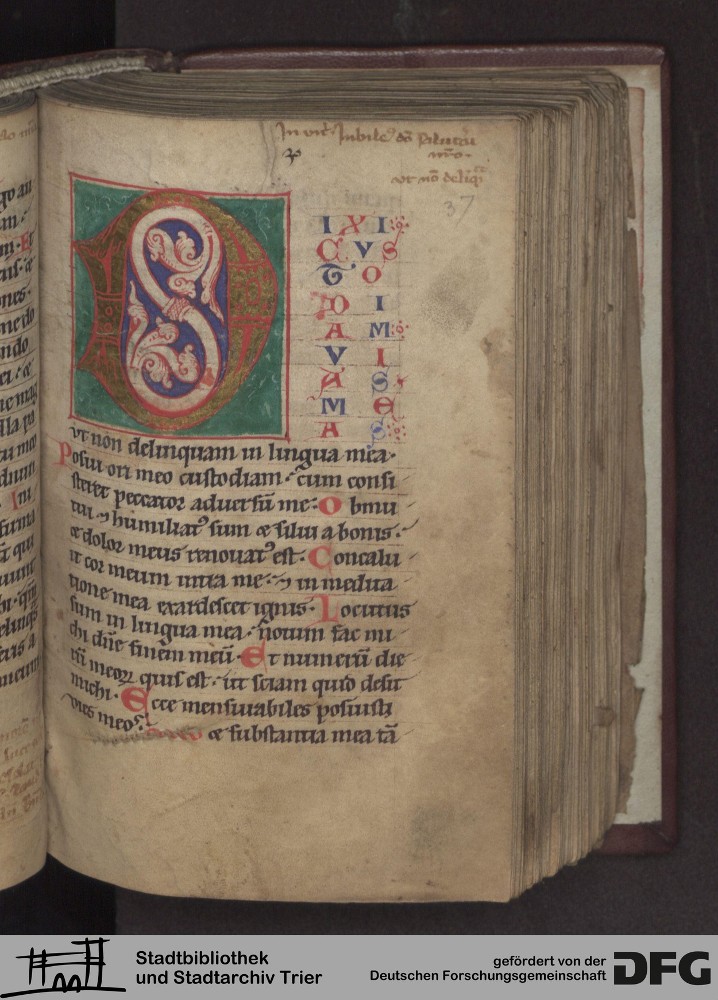 In vit. Jubile. do Salutari
nro.
ut no deliq
37
I X I
C V S
T O
O I
D I
A M
V I
A S
M E
A S
ut non delinquam in lingua mea·
Posui ori meo custodiam· cum consi
steret peccator adversū me· Obmu
tui ⁊ humiliatꝰ sum ⁊ silui a bonis·
⁊ dolor meus renouatꝰ est· Concalu
it cor meum intra me· ⁊ in medita
tione mea exardescet ignis· Locutus
sum in lingua mea· notum fac mi
chi dn̄e finem meū· Et numerū die
rū meoꝝ quis est· ut sciam quid desit
michi· Ecce mensurabiles posuisti
dies meos·
et substantia mea tā
Stadtbibliothek
und Stadtarchiv Trier
gefördert von der
Deutschen Forschungsgemeinschaft
DFG